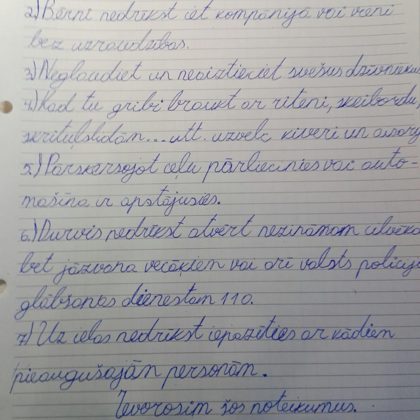 2.) Bērni nedrīkst iet kompānijā vai vieni
bez uzraudzības.
3.) Neglaudiet un neaiztieciet svešus dzīvniekus
4.) Kad tu gribi braukt ar riteni, skeibordu
skrituļslidām...utt. uzvelc ķiveri un aizsarg
5.) Pārskērsojot ceļu pārliecinies vai auto-
mašīna ir apstājusies.
6.) Durvis nedrīkst atvērt nezināmam cilvēka
bet jāzvana vecākiem vai arī valsts policija
glābšanas dienestam 110.
7.) Uz ielas nedrīkst iepazīties ar kādiem
pieaugušajām personām.
Ievorosim šos noteikumus.